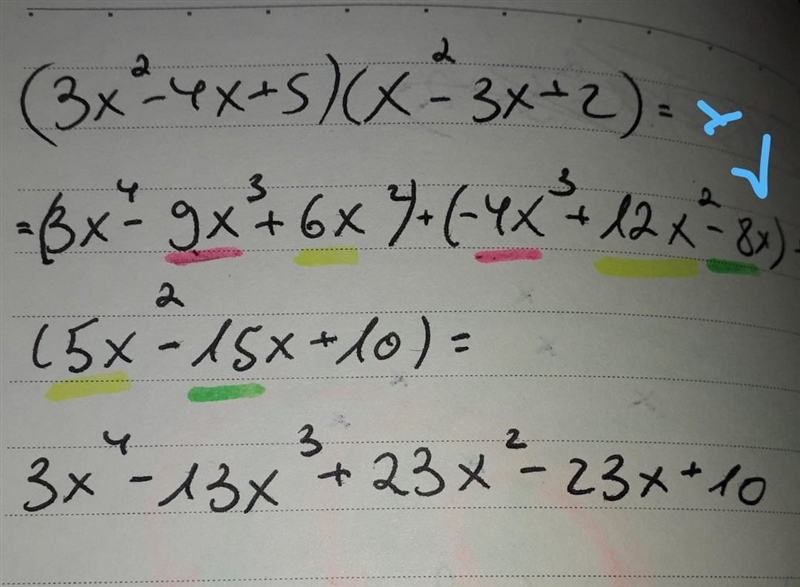 (3x² - 4x + 5)(x² - 3x + 2) =
= (3x⁴ - 9x³ + 6x²) + (-4x³ + 12x² - 8x) +
(5x² - 15x + 10) =
3x⁴ - 13x³ + 23x² - 23x + 10